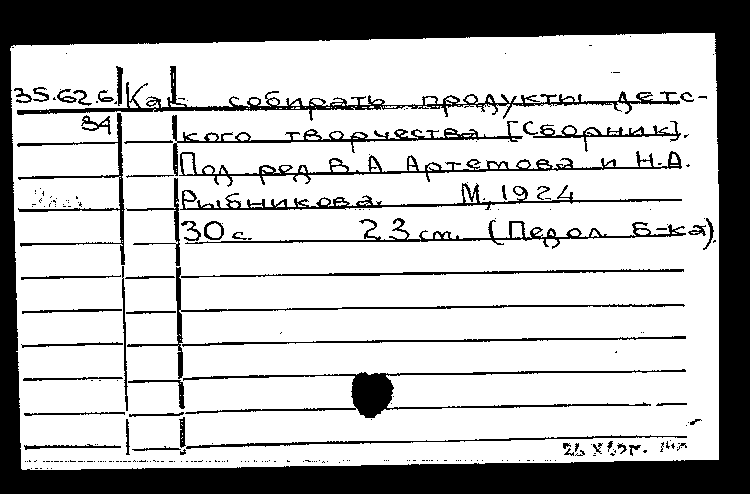 35.62.6. Как собирать продукты детс-
34 кого творчества. [Сборник].
Под ред В.А Артемова и Н.А.
Рыбникова. М, 1924
30 с. 23 см. (Педол. Б-ка)
26 X